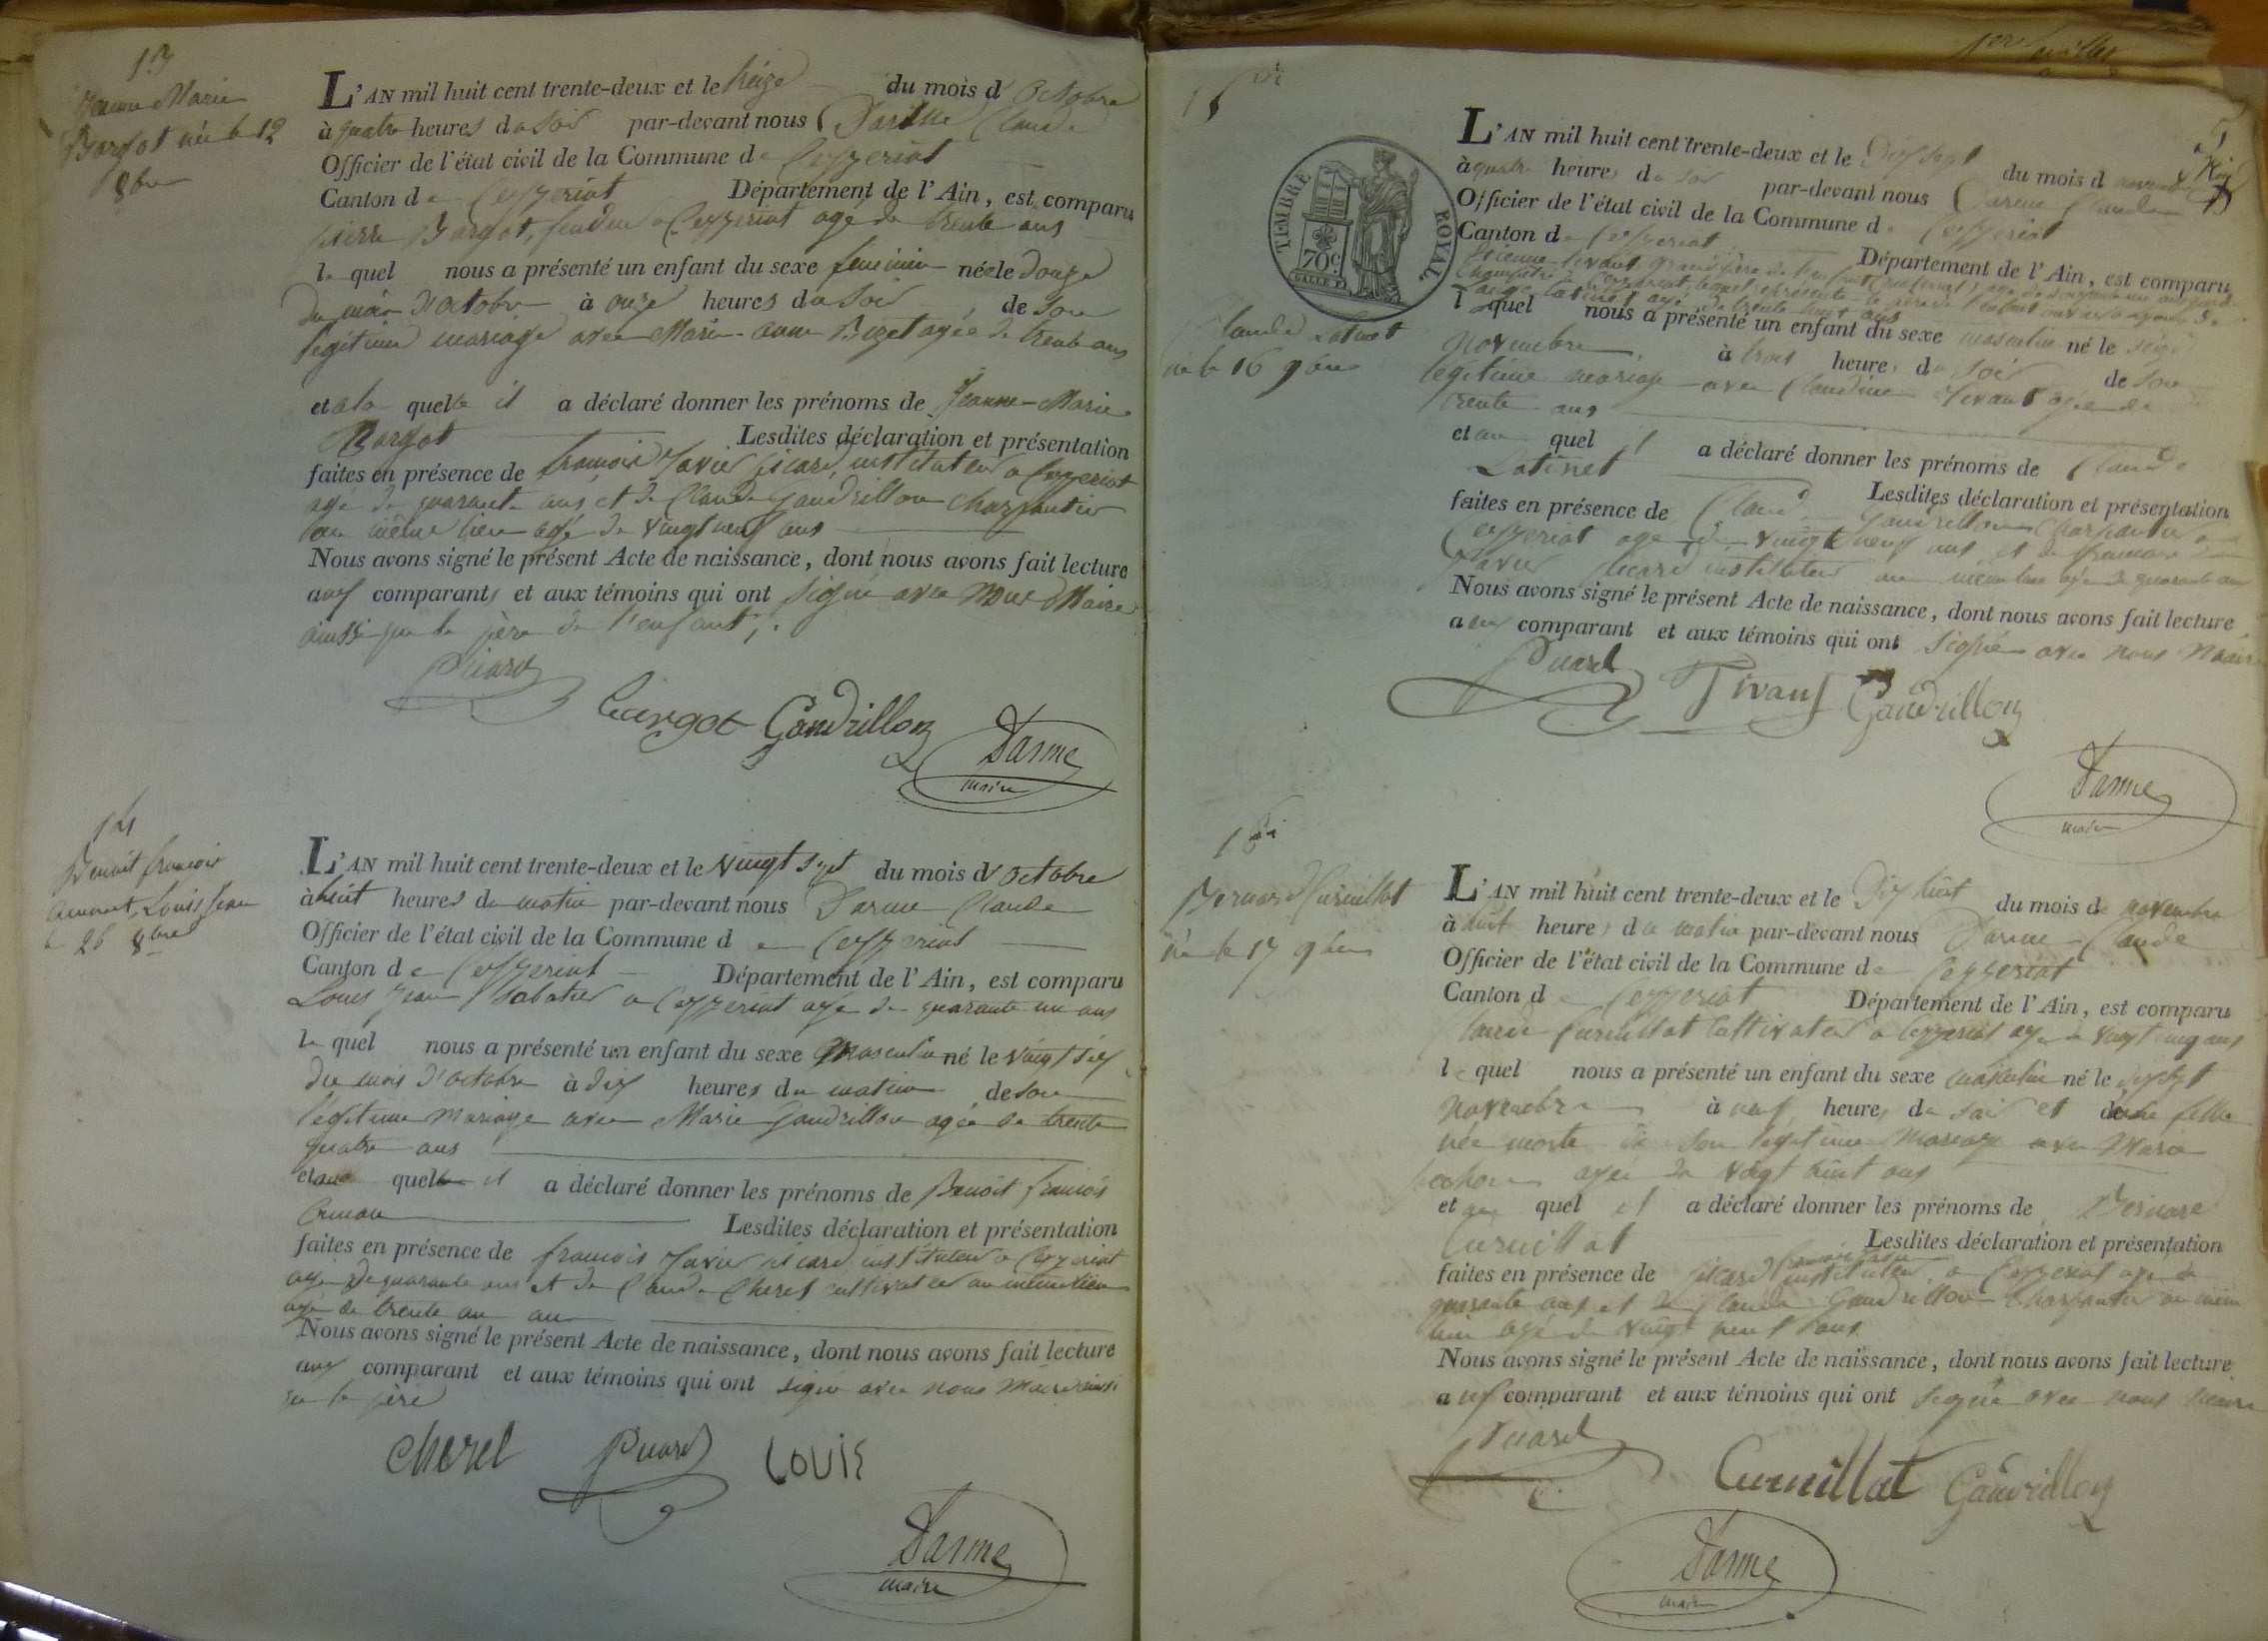 13
Jeanne Marie
Bargot née le 12
8bre
L'AN mil huit cent trente-deux et le treize du mois d'Octobre
à quatre heures du soir par-devant nous Darme Claude
Officier de l'état civil de la Commune de Ceyzeriat
Canton de Ceyzeriat Département de l'Ain, est comparu
pierre Bargot, à Ceyzeriat agé de trente ans
le quel nous a présenté un enfant du sexe feminin née le douze
du mois d'octobre à onze heures du soir de son
légitime mariage avec Marie-anne Bizet agée de trente ans
et à la quelle il a déclaré donner les prénoms de Jeanne-Marie
Bargot Lesdites déclaration et présentation
faites en présence de francois Xavier picard instituteur a Ceyzeriat
agé de quarante ans et de Claude Gaudrillon charpentier
au même lieu agé de vingt neuf ans
Nous avons signé le présent Acte de naissance, dont nous avons fait lecture
aux comparants et aux témoins qui ont signé avec nous Maire
ainsi que le père de l'enfant.
Picard
Bargot Gaudrillon
Darme
maire
14
Benoit francois
Louis Jean
le 26 8bre
L'AN mil huit cent trente-deux et le vingt sept du mois d'octobre
à huit heures du matin par-devant nous Darme Claude
Officier de l'état civil de la Commune de Ceyzeriat
Canton de Ceyzeriat Département de l'Ain, est comparu
Louis Jean sabotier a Ceyzeriat agé de quarante un ans
le quel nous a présenté un enfant du sexe masculin né le vingt six
du mois d'octobre à dix heures du matin de son
légitime mariage avec Marie Gaudrillon agée de trente
quatre ans
et au quel il a déclaré donner les prénoms de Benoit francois
Lesdites déclaration et présentation
faites en présence de francois Xavier picard instituteur a Ceyzeriat
agé de quarante ans et de Claude Cherel cultivateur au même lieu
agé de trente un an
Nous avons signé le présent Acte de naissance, dont nous avons fait lecture
aux comparant et aux témoins qui ont signé avec nous Maire ainsi
que le père
Cherel Picard LOUIS
Darme
maire
15
TIMBRE ROYAL
70c
Claude Latinet
né le 16 9bre
L'AN mil huit cent trente-deux et le dix sept du mois de novembre
à quatre heures du soir par-devant nous Darme Claude
Officier de l'état civil de la Commune de Ceyzeriat
Canton de Ceyzeriat Département de l'Ain, est comparu
Etienne Tivant grand père de l'enfant
l quel nous a présenté un enfant du sexe masculin né le seize
novembre à trois heures du soir de son
légitime mariage avec Claudine Tivant agée de
trente ans
et au quel il a déclaré donner les prénoms de Claude
Latinet Lesdites déclaration et présentation
faites en présence de Claude Gaudrillon charpentier a
Ceyzeriat agé de vingt neuf ans et de francois
Xavier picard instituteur au même lieu agé de quarante ans
Nous avons signé le présent Acte de naissance, dont nous avons fait lecture
aux comparant et aux témoins qui ont signé avec nous Maire
Picard Tivant Gaudrillon
Darme
maire
16
Bernard Curnillat
né le 17 9bre
L'AN mil huit cent trente-deux et le Dix huit du mois de novembre
à huit heures du matin par-devant nous Darme Claude
Officier de l'état civil de la Commune de Ceyzeriat
Canton de Ceyzeriat Département de l'Ain, est comparu
Claude Curnillat Cultivateur a Ceyzeriat agé de vingt cinq ans
le quel nous a présenté un enfant du sexe masculin né le dix sept
novembre à neuf heures du soir et une fille
née morte de son légitime mariage avec Marie
agée de vingt huit ans
et au quel il a déclaré donner les prénoms de Bernard
Curnillat Lesdites déclaration et présentation
faites en présence de picard francois Xavier instituteur a Ceyzeriat agé de
quarante ans et de Claude Gaudrillon charpentier au même
lieu agé de vingt neuf ans
Nous avons signé le présent Acte de naissance, dont nous avons fait lecture
aux comparant et aux témoins qui ont signé avec nous maire
Picard
Curnillat Gaudrillon
Darme
maire